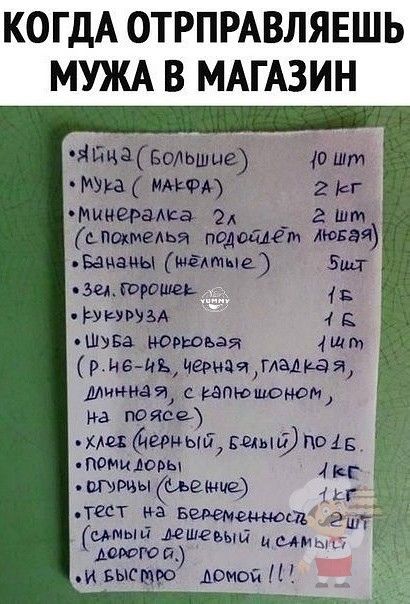 КОГДА ОТРПРАВЛЯЕШЬ
МУЖА В МАГАЗИН
•Яйца (Большие) 10 шт
•Мука (МАКФА) 2 кг
•Минералка 2л 2 шт
(с похмелья подойдёт любая)
•Бананы (жёлтые) 5шт
•Зел. горошек 1Б
YUMMY
•Кукуруза 1Б
•Шуба норковая 1шт
(р.46-48, чёрная, гладкая,
длинная, с капюшоном,
на поясе)
•Хлеб (чёрный, белый) по 1Б.
•Помидоры 1кг
•Огурцы (свежие) 1кг
•Тест на беременность 2шт
(самый дешевый и самый
дорогой.)
•И быстро домой!!!